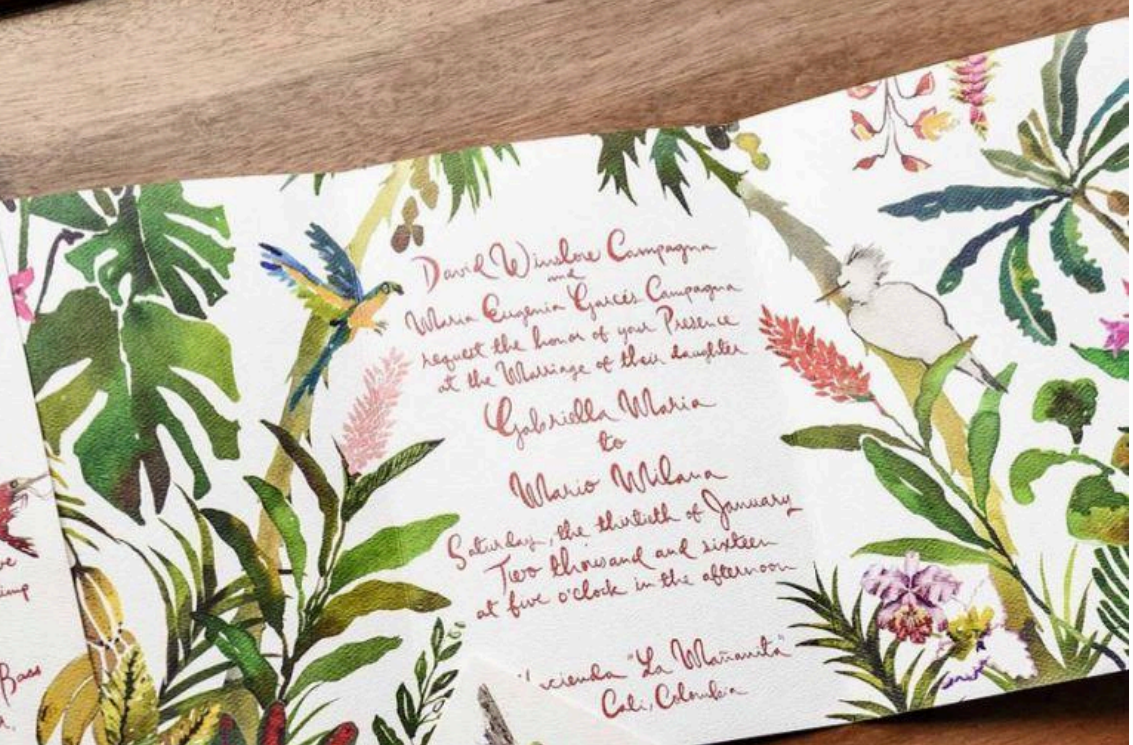 ve
imp
Bass
David Winslow Campagna
and
Maria Eugenia Garcés Campagna
request the honor of your Presence
at the Marriage of their daughter
Gabriella Maria
to
Mario Milana
Saturday, the thirtieth of January
Two thousand and sixteen
at five o'clock in the afternoon
"La Mañanita"
Cali, Colombia